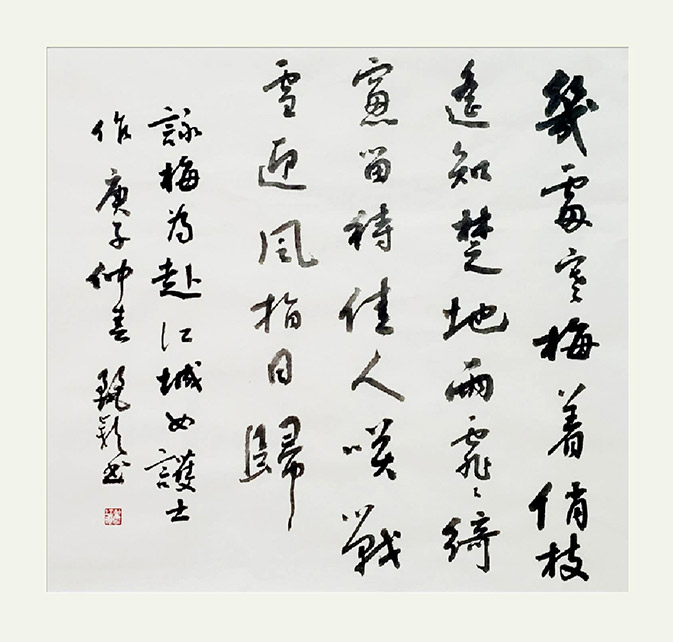 幾處寒梅着俏枝
遙知楚地雨霏々綺
窗留待佳人咲戰
雪迎風指日歸
詠梅為赴江城女護士
作 庚子仲春 書